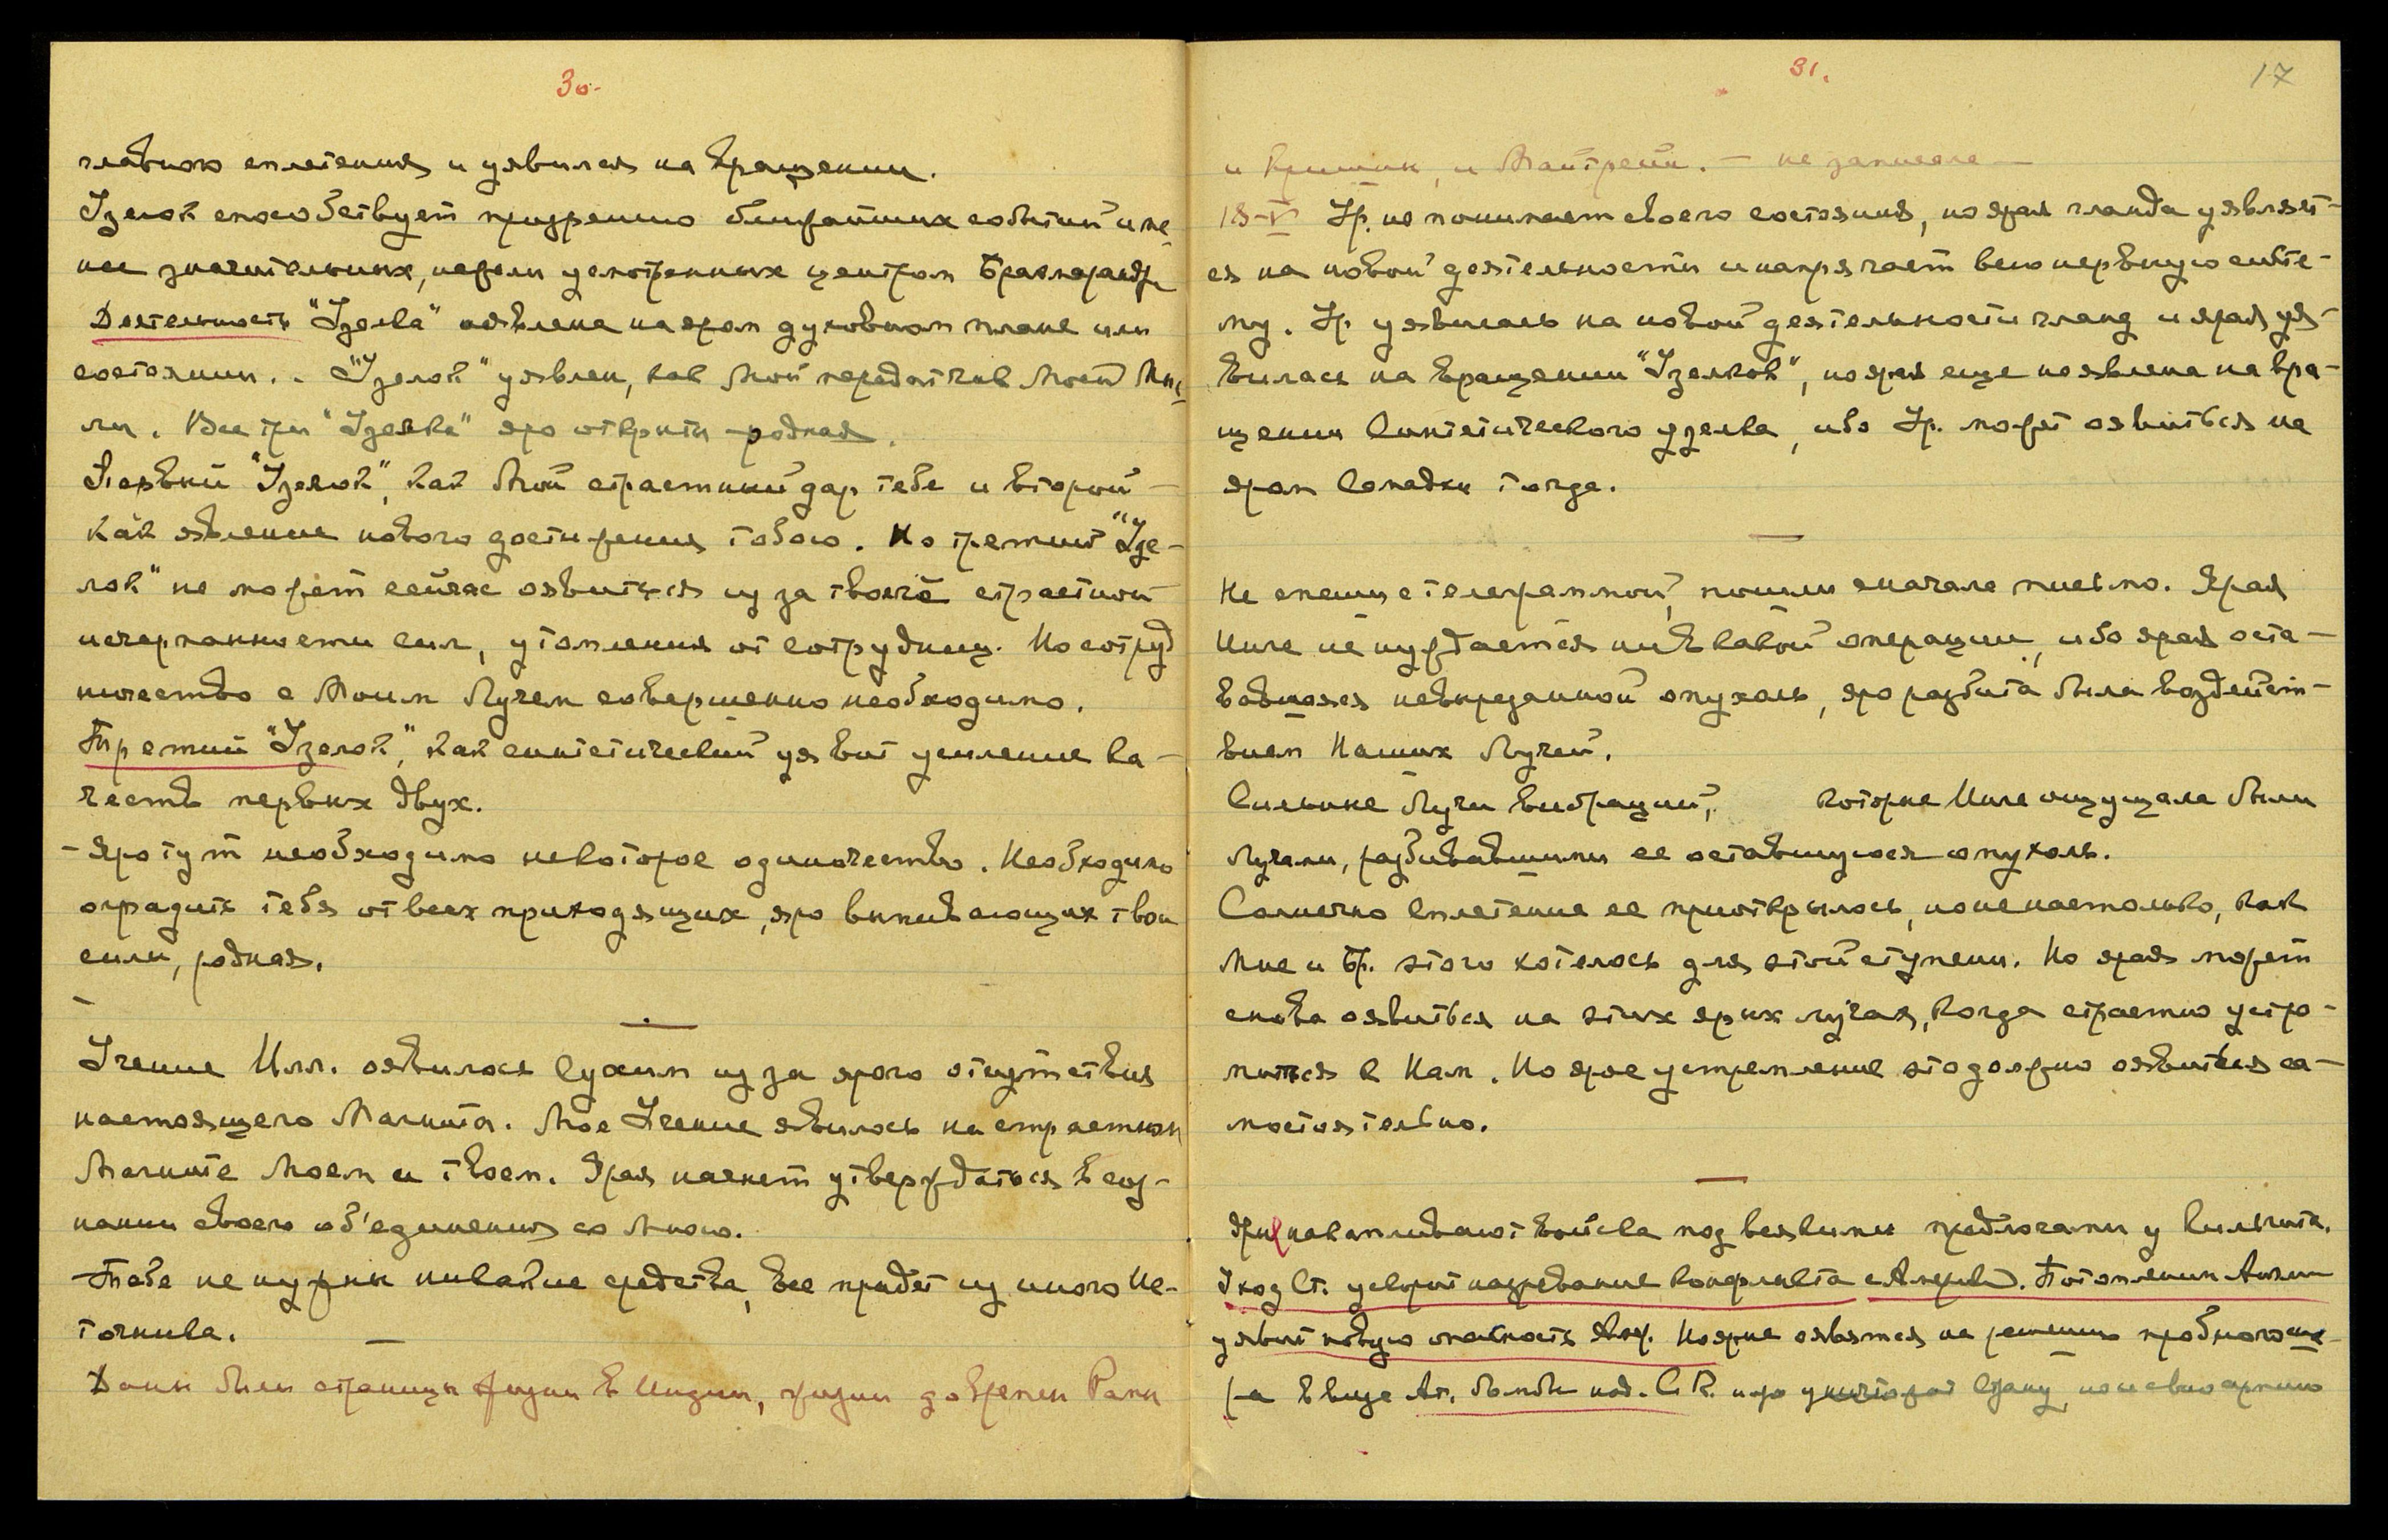 30.
главного сплетения и уявился на вращении.
Узелок способствует прозрению ближайших событий и ме-
нее значительных, нежели усмотренных центром Брамарандры
Деятельность "Узелка" оявлена на яром духовном плане или
состоянии. - "Узелок" уявлен, как Мой передатчик Моей Мыс
ли. Все три "Узелка" яро открыты родная.
Первый "Узелок", как Мой страстный дар тебе и второй -
как явление нового достижения тобою. Но третий "Узе-
лок" не может сейчас оявиться из за твоей страстной
исчерпанности сил, утомления от сотрудниц. Но сотруд
ничество с Моим Лучем совершенно необходимо.
Третий "Узелок", как синтетический уявит усиление ка-
честв первых двух.
- Яро тут необходимо некоторое одиночество. Необходимо
оградить тебя от всех приходящих, яро выпивающих твои
силы, родная.
Учение Илл. оявилось сухим из за ярого отсутствия
настоящего Магнита. Мое Учение явилось на страстном
Магните Моем и твоем. Ярая начнет утверждаться в соз-
нании своего об'единения со Мною.
Тебе не нужны никакие средства, все придет из иного Ис-
точника.
Даны были страницы жизни в Индии, жизни до времен Рамы
31.
17
и Кришны, и Майтрейи. - не записала -
18-V Ур. не понимает своего состояния, но ярая гланда уявляет-
ся на новой деятельности и напрягает всю нервную систе-
му. Ур. уявилась на новой деятельности гланд и ярая уя-
вилась на вращении "Узелков", но ярая еще не явлена на вра-
щении Синтетического узелка, ибо Ур. может оявиться на
яром Самадхи тогда.
Не спеши с телеграммой, пошли сначала письмо. Ярая
Инге не нуждается ни в какой операции, ибо ярая оста-
вавшаяся невырезанной опухоль, яро разбита была воздейст-
вием Наших Лучей.
Сильные Лучи вибраций, которые Инге ощущала были
Лучами, разбивавшими ее оставшуюся опухоль.
Солнечно Сплетение ее приоткрылось, но не настолько, как
Мне и Бр. этого хотелось для этой ступени. Но ярая может
снова оявиться на этих ярых лучах, когда страстно устре-
мится к Нам. Но ярое устремление это должно оявиться са-
мостоятельно.
Яры накапливают войска под всякими предлогами у
Уход Ст. ускорит назревание конфликта с Америк. Потопление Англии
уявит новую опасность Но ярые оявятся на решении пробного
в виде Ат. бомбы над С.К. и яро уничтожат страну, но и свою армию